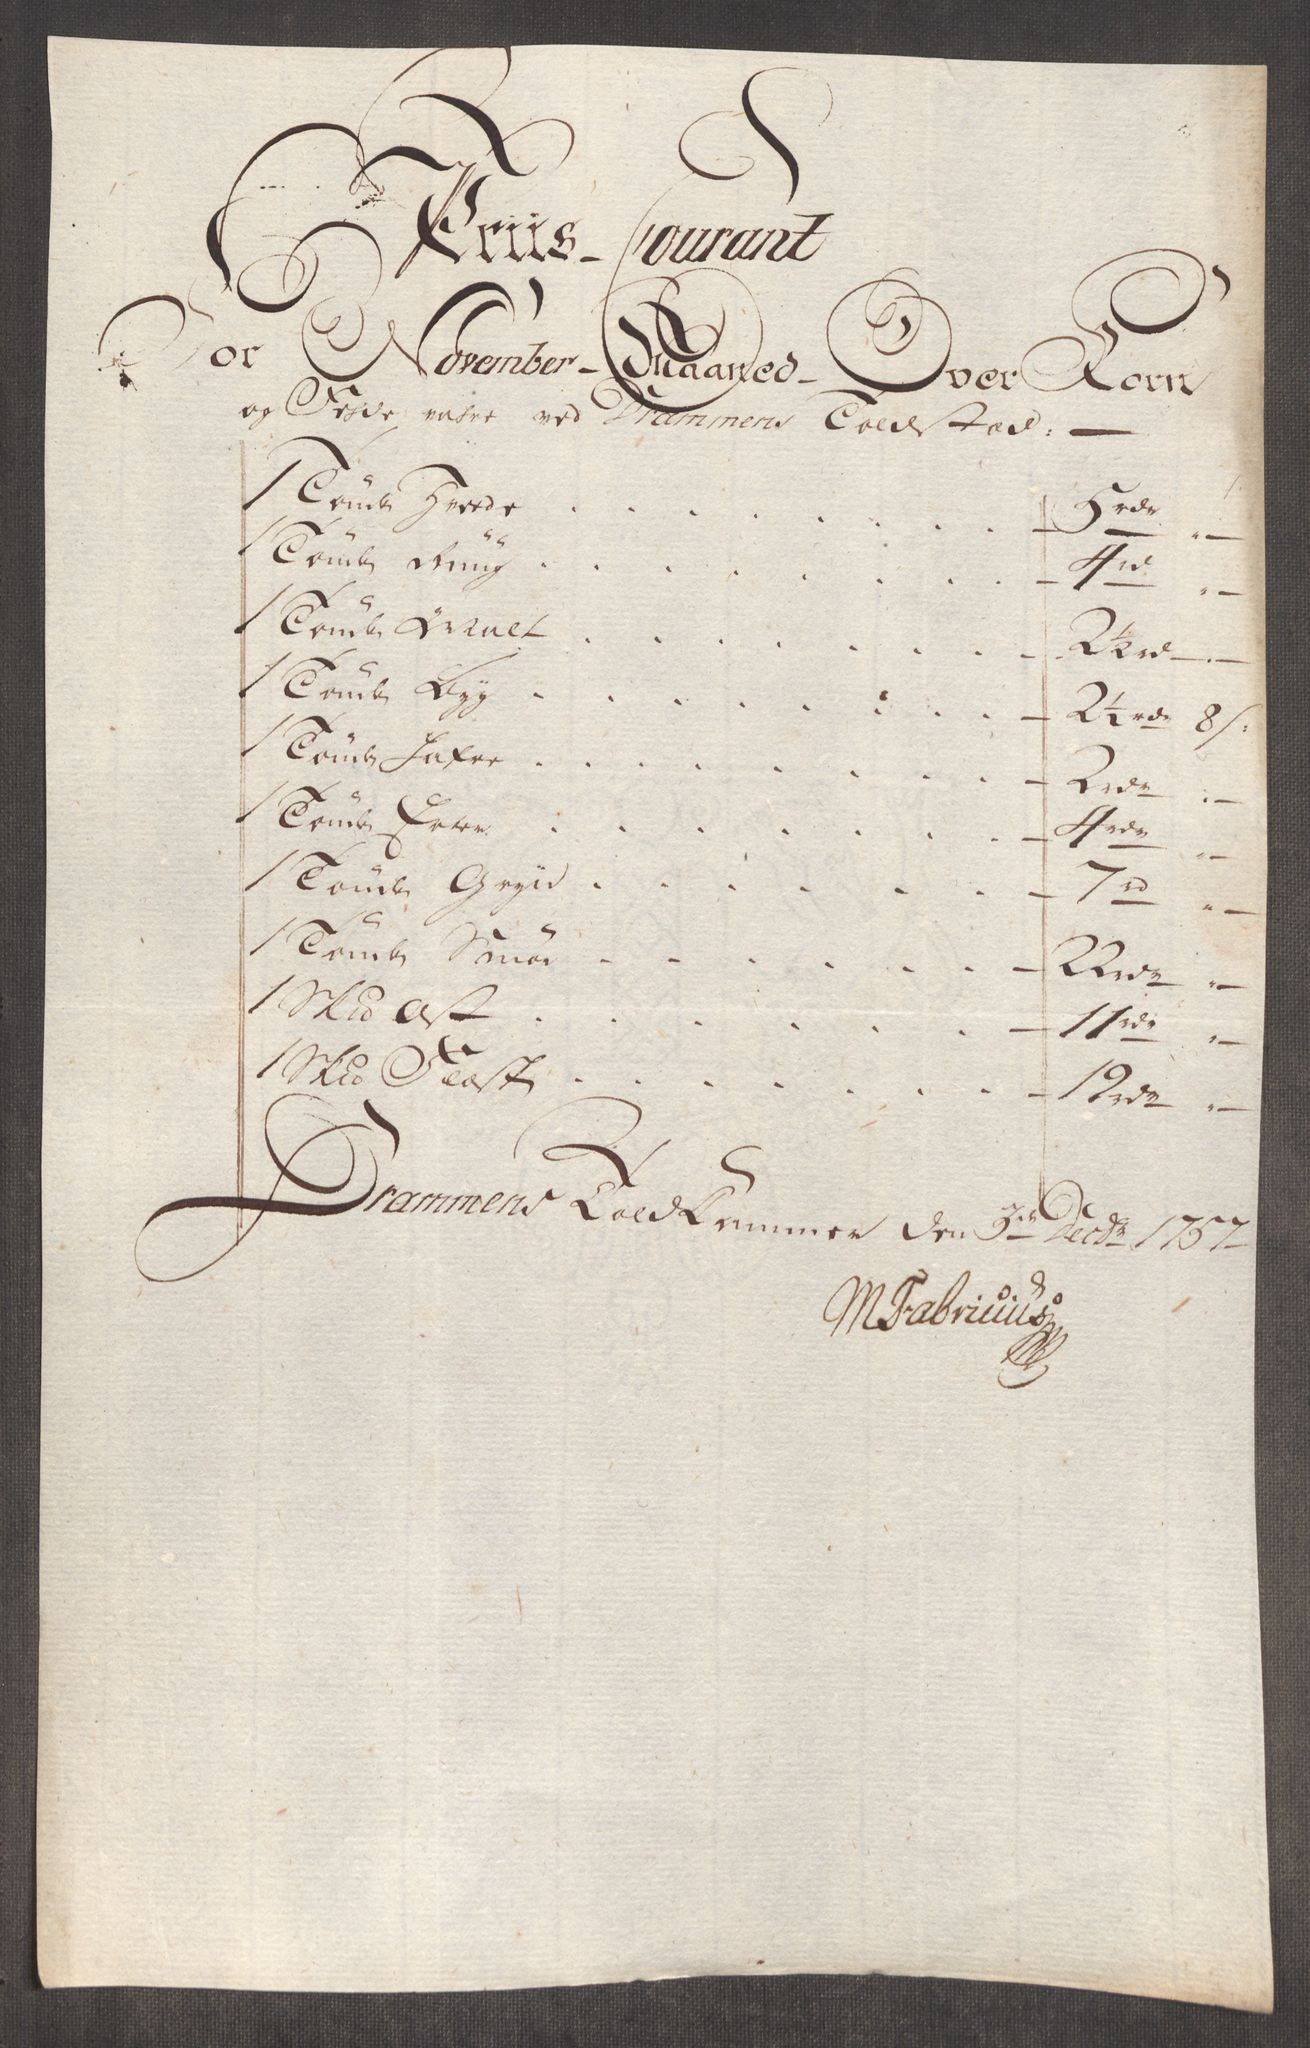 Priis-Courant
For November-Maaned-Over Korn
og Fede vare ved Drammens Toldstad:
1 Tønde Hvede . . . . . . . 5 rdr „
1 Tønde Rüüg . . . . . . . 4 rd „
1 Tønde Malt . . . . . . . 2½ rd
1 Tønde Byg . . . . . . . 2½ rdr 8 s:
1 Tønde Hafre . . . . . . . 2 rdr „
1 Tønde Erter . . . . . . . 4 rdr „
1 Tønde Gryn . . . . . . . 7 rd „
1 Tønde Smør . . . . . . . 22 rdr „
1 Skd Ost . . . . . . . 11 rdr „
1 Skd Flæsk . . . . . . . 12 rdr „
Drammens Told Cammer den 3de Decbr 1757
M Fabricius